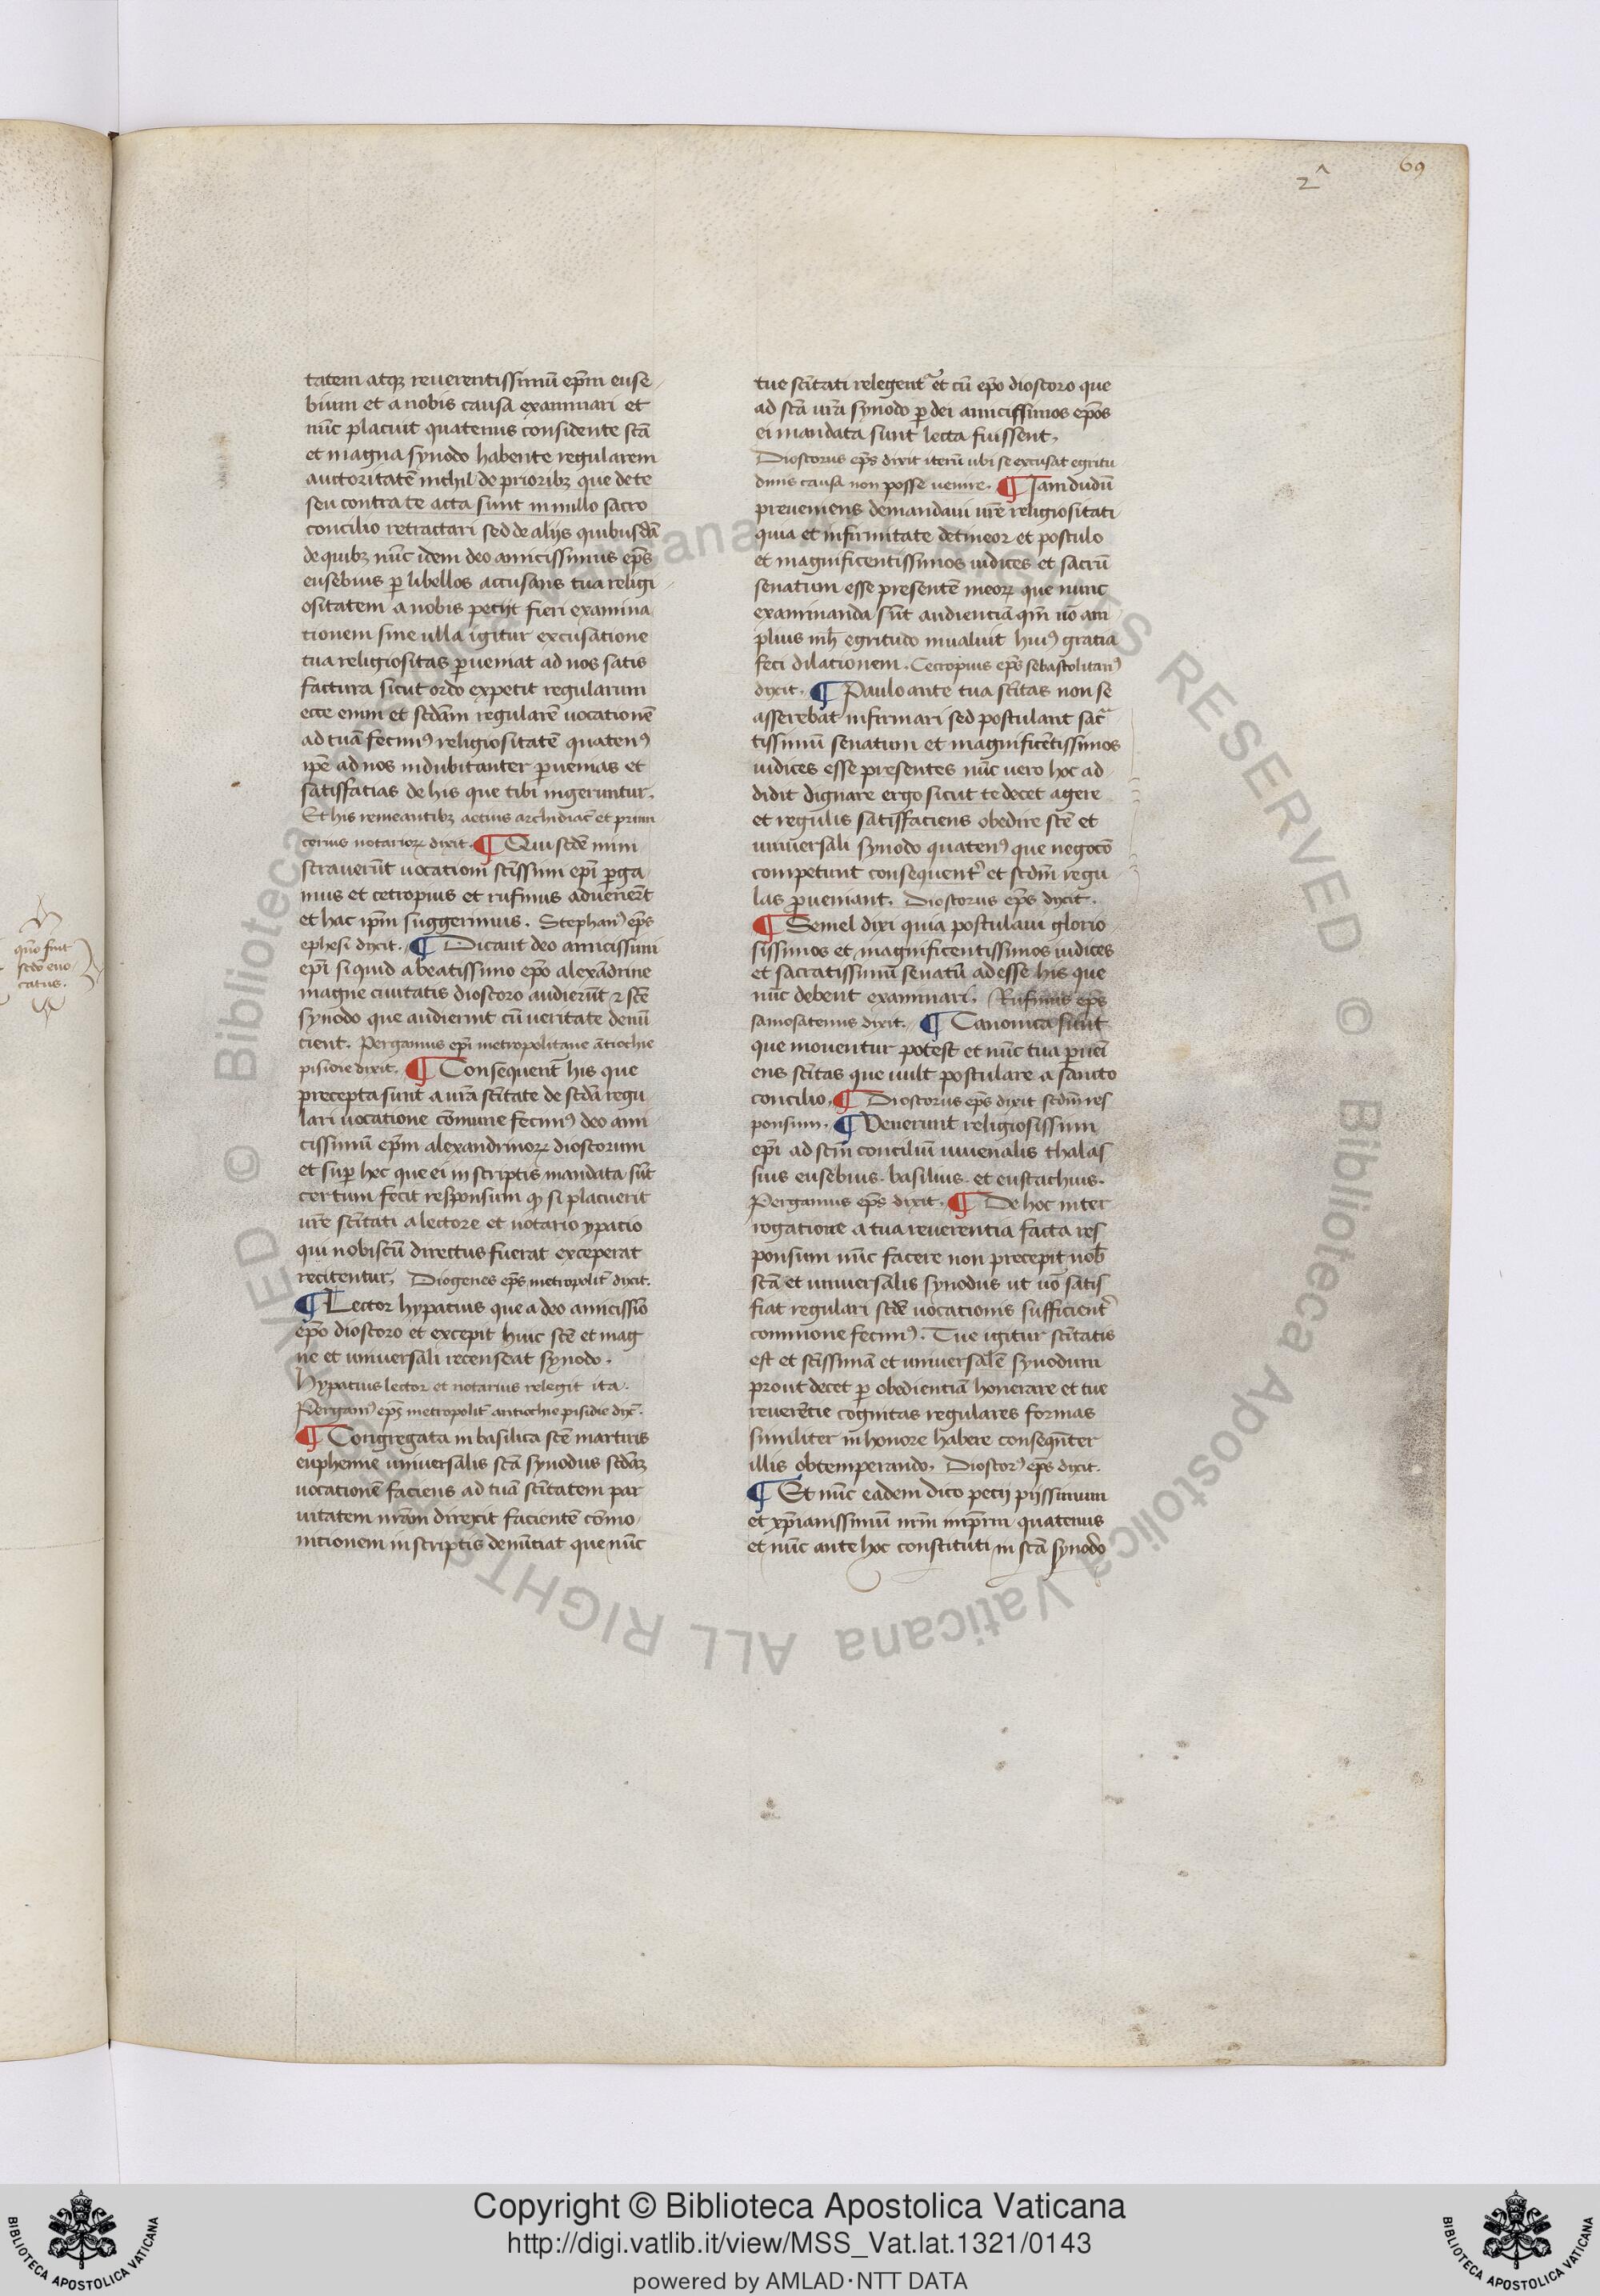 2ᴬ
69
tatem atqꝫ reuerentissimū ep̄m euse
bium et a nobis causa examinari et
nūc placuit quatenus considente scā
et magna synodo habente regularem
auctoritatē nichil de prioribꝫ que de te
seu contra te acta sunt in nullo sacro
concilio retractari sed de alijs quibusdā
de quibꝫ nūc idem deo amicissimus ep̄s
eusebius ꝑ libellos accusans tua religi
ositatem a nobis petijt fieri examina
tionem sine ulla igitur excusatione
tua religiositas ꝑueniat ad nos satis
factura sicut ordo expetit regularum
ecce enim et scdām regularē uocationē
ad tuā fecimꝰ religiositatē quatenꝰ
ipē ad nos indubitanter ꝑuenias et
satisfatias de his que tibi ingeruntur.
Et his remeantibꝫ aetius archidiac̄ et primi
cerius notarioꝝ dixit. ¶ Qui scdē mini
strauerūt uocationi sc̄issimi ep̄i ꝑga
mus et cecropius et rufinus aduenerūt
et hac ip̄m suggerimus. Stephanꝰ ep̄s
ephesi dixit. ¶ Dicant deo amicissimi
ep̄i si quid a beatissimo ep̄o alexādrine
magne ciuitatis dioscoro audierūt ⁊ scē
synodo que audierint cū ueritate denū
cient. Pergamus ep̄i metropolitane ātiochie
pisidie dixit. ¶ Consequent̄ his que
precepta sunt a ur̄a sc̄itate de scdā regu
lari uocatione cōmune fecimꝰ deo ami
cissimū ep̄m alexandrinoꝝ dioscorum
et suꝑ hec que ei in scriptis mandata sūt
certum fecit responsum ꝙ si placuerit
ur̄e sc̄itati a lectore et notario ypacio
qui nobiscū directus fuerat exceperat
recitentur, Diogenes ep̄s metropolit̄ dixit.
¶ Lector hypatius que a deo amicissīo
ep̄o dioscoro et excepit huic scē et mag
ne et uniuersali recenseat synodo.
hypatius lector et notarius relegit ita.
Pergamꝰ ep̄s metropolit̄ antiochie pisidie dix̄.
¶ Congregata in basilica scē martiris
euphemie uniuersalis scā synodus scdāꝫ
uocationē faciens ad tuā sc̄itatem par
uitatem nr̄am direxit facientē cōmo
nicionem in scriptis denūtiat que nūc
tue sc̄itati relegent̄ et cū ep̄o dioscoro que
ad scā ur̄a synodo ꝑ dei amicissimos ep̄os
ei mandata sunt lecta fuissent.
Dioscorus ep̄s dixit iterū ubi se excusat egritu
dinis causa non posse uenire. ¶ Iam dudū
preueniens demandaui ur̄e religiositati
quia et infirmitate detineor et postulo
et magnificentissimos iudices et sacrū
senatum esse presentē meoꝝ que nunc
examinanda sūt audienciā qm̄ nō am
plius mh̄ egritudo inualuit huiꝰ gratia
feci dilationem. Cecropius ep̄s sebastolitanꝰ
dixit. ¶ Paulo ante tua sc̄itas non se
asserebat infirmari sed postulant sac̄
tissimū senatum et magnificētissimos
iudices esse presentes nūc uero hoc ad
didit dignare ergo sicut te decet agere
et regulis satisfaciens obedire scē et
uniuersali synodo quatenꝰ que negocō
competunt consequent̄ et scdm̄ regu
las ꝓueniant. Dioscorus ep̄s dixit.
¶ Semel dixi quia postulaui glorio
sissimos et magnificentissimos iudices
et sacratissimū senatū adesse his que
nūc debent examinari. Rufinus ep̄s
samosatenus dixit. ¶ Canonica sunt
que mouentur potest et nūc tua ꝑueī
ens sc̄itas que uult postulare a sancto
concilio. ¶ Dioscorus ep̄s dixit scdm̄ res
ponsum. ¶ Venerunt religiosissimi
ep̄i ad scm̄ conciliū iuuenalis thalas
sius eusebius. basilius. et eustachius.
Pergamus ep̄s dixit. ¶ De hoc inter
rogatione a tua reuerentia facta res
ponsum nūc facere non precepit nob̄
scā et uniuersalis synodus ut nō satis
fiat regulari scdē uocationis sufficient̄
commone fecimꝰ. Tue igitur sc̄itatis
est et sc̄issimā et uniuersalē synodum
prout decet ꝑ obedientiā honerare et tue
reuerētie cognitas regulares formas
similiter in honore habere consequn̄ter
illis obtemperando. Dioscorꝰ ep̄s dixit.
¶ Et nūc eadem dico petij pijssimum
et xp̄ianissimū nr̄m imp̄rm quatenus
et nūc ante hoc constituti in scā synodo
quō fuit
scdō euo
catus.
Copyright © Biblioteca Apostolica Vaticana
http://digi.vatlib.it/view/MSS_Vat.lat.1321/0143
powered by AMLAD·NTT DATA
BIBLIOTECA APOSTOLICA VATICANA
BIBLIOTECA APOSTOLICA VATICANA
© Biblioteca Apostolica Vaticana ALL RIGHTS RESERVED © Biblioteca Apostolica Vaticana ALL RIGHTS RESERVED